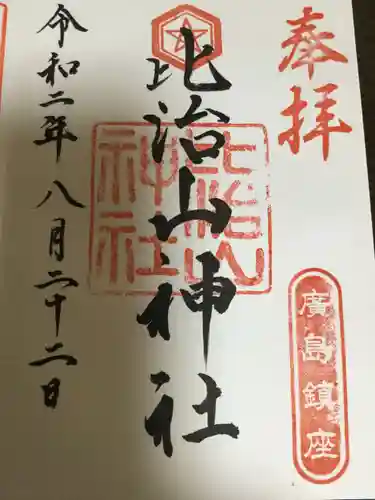 奉拝
廣島鎮座
比治山神社
比治山
神社
令和二年八月二十二日